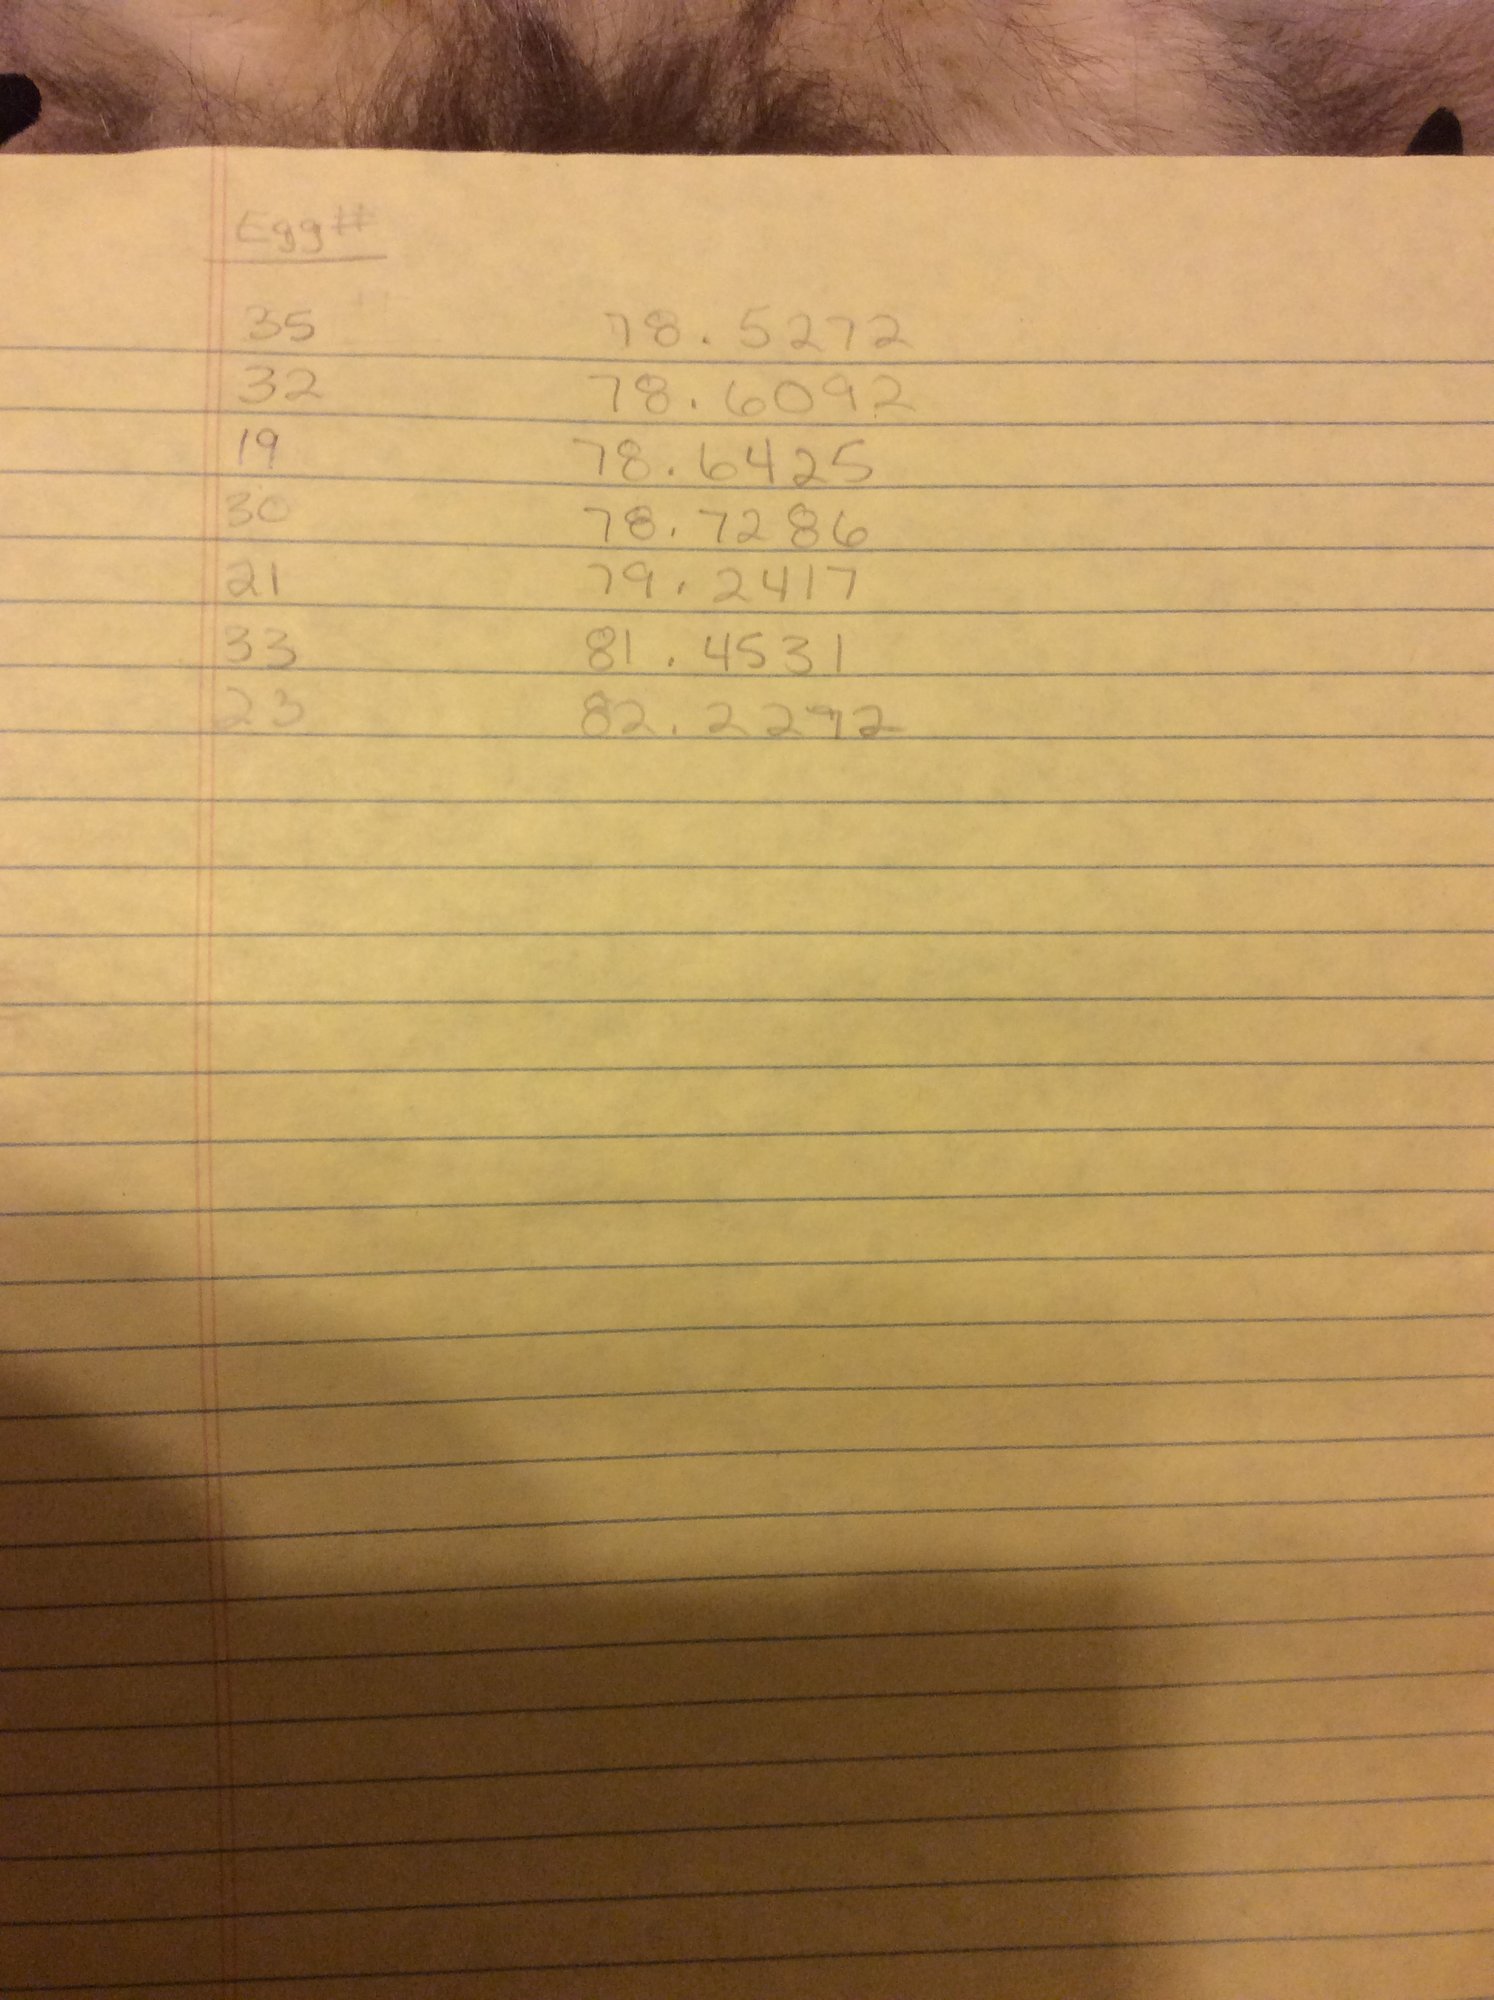 Egg#
35 78.5272
32 78.6092
19 78.6425
30 78.7286
21 79.2417
33 81.4531
23 82.2292